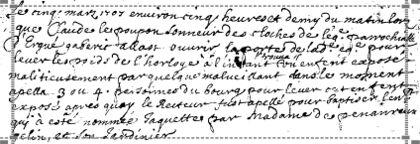 le cinq mars 1707 environ cinq heures et demy du matin lors
que Claude le poupon sonneur des cloches de parrochialle
Ergué gaberic allast ouvrir la porte de pour
lever les poids de l'horloge a l'instant trouva un enfent exposé
malitieusement par quelque mal vueillant dans le moment
apella 3 ou 4 personnes du bourg pour lever cet enfent
exposé apres quoy le Recteur fust apellé pour baptiser l'en
qui a esté nommée Jaquette par Madame de penanrun
gelin, et son Jardinier